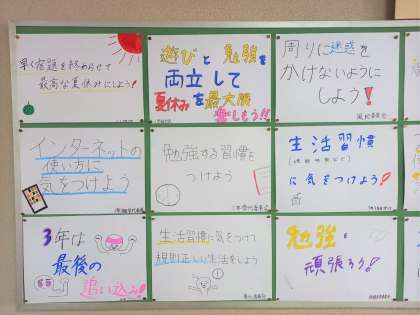 早く宿題を終わらせて
最高な夏休みにしよう!
遊びと勉強を
両立して
夏休みを最大限
楽しもう!!
周りに迷惑を
かけないように
しよう!
風紀委員会
インターネットの
使い方に
気をつけよう
勉強する習慣を
つけよう
生活習慣
に気をつけよう!
3年は
最後の
追い込み!
生活習慣に気をつけて
規則正しい生活をしよう
勉強を
頑張ろう!